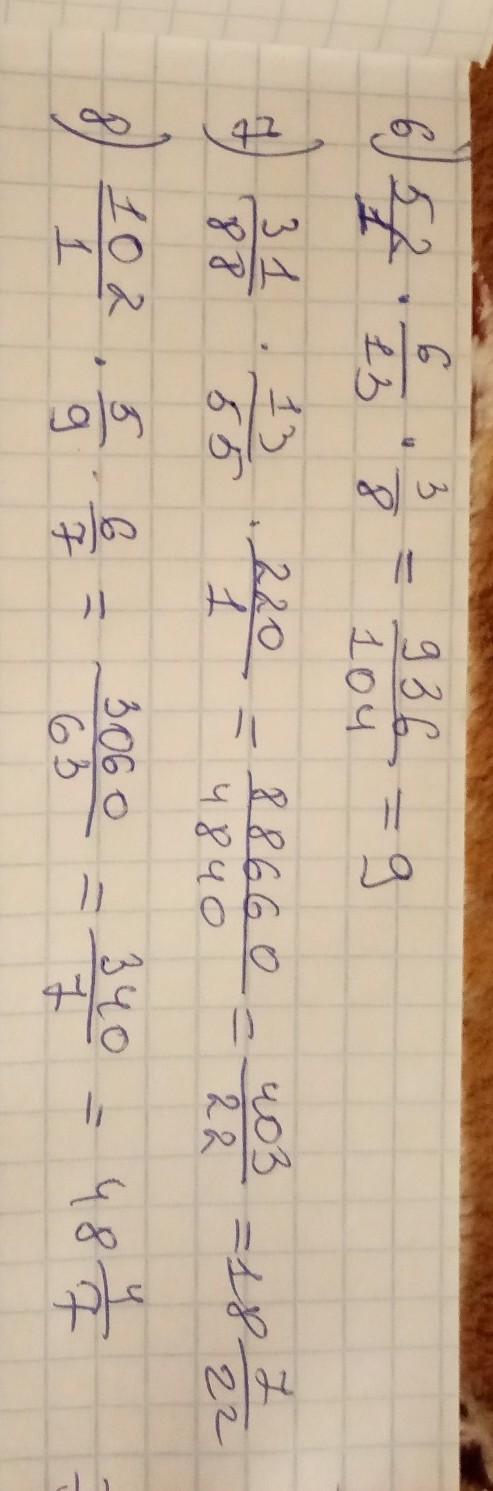 6) 52/1 · 6/13 · 3/8 = 936/104 = 9
7) 31/88 · 13/55 · 220/1 = 88660/4840 = 403/22 = 18 7/22
8) 102/1 · 5/9 · 6/7 = 3060/63 = 340/7 = 48 4/7